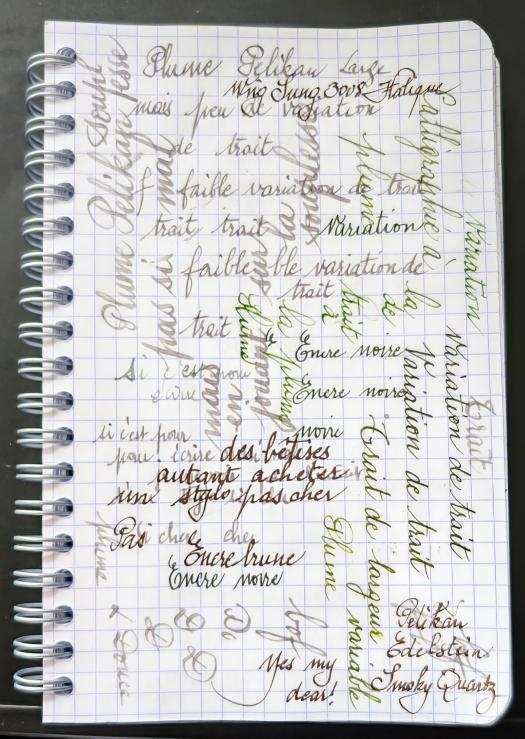 Plume Pelikan Large
Wing Sung 3008 Italique
mais peu de variation
de trait
faible variation de trait
trait trait
Variation
faible ble variation de
trait
trait
Encre noire
Si c'est pour
écrire
Encre noire
si c'est pour
noire
pour écrire des bêtises
autant acheter
un stylo pas cher
Pas si cher cher
Encre brune
Encre noire
bof
Yes my
dear!
Pelikan
Edelstein
Smoky Quartz
Plume Pelikan
Souple
pas si mal
mais
en jouant sur la souplesse
Plume
la plume
trait à
plume
Plume
Trait de largeur variable
Calligraphie à la
de
variation de trait
Variation
variation de trait
Trait
plume